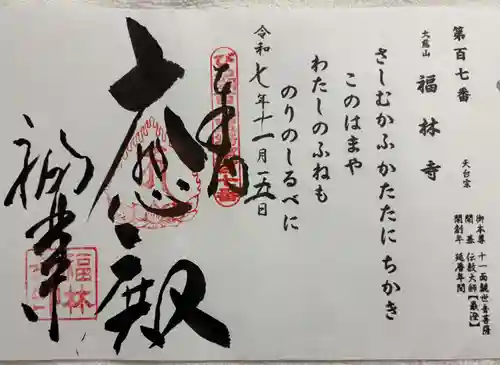 第百七番
大熊山
福林寺
天台宗
御本尊 十一面観世音菩薩
開基 伝教大師【最澄】
開創年 延暦年間
さしむかふかたたにちかき
このはまや
わたしのふねも
のりのしるべに
令和七年十一月一五日
奉拝
大悲殿
福林寺
福林